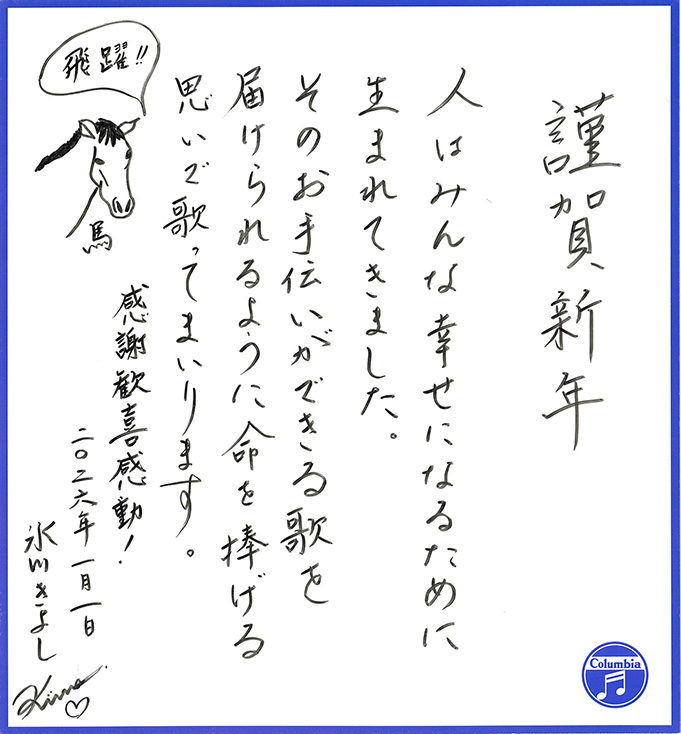 謹賀新年
人はみんな幸せになるために
生まれてきました。
そのお手伝いができる歌を
届けられるように命を捧げる
思いで歌ってまいります。
感謝歓喜感動!
二〇二六年一月一日
氷川きよし
Kiina
飛躍!!
馬
Columbia